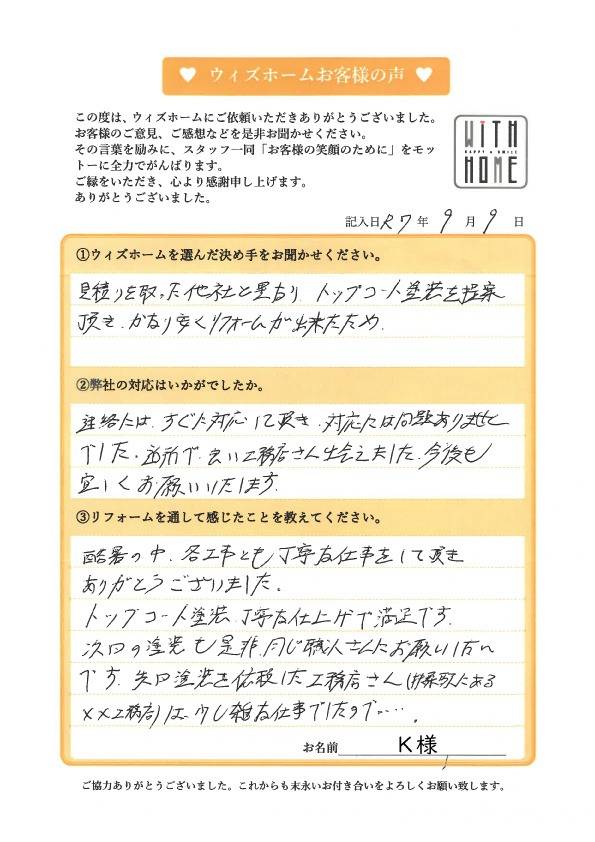 ♥ ウィズホームお客様の声 ♥
この度は、ウィズホームにご依頼いただきありがとうございました。
お客様のご意見、ご感想などを是非お聞かせください。
その言葉を励みに、スタッフ一同「お客様の笑顔のために」をモッ
トーに全力でがんばります。
ご縁をいただき、心より感謝申し上げます。
ありがとうございました。
WITH
HAPPY & SMILE
HOME
記入日 R7年 9月 9日
①ウィズホームを選んだ決め手をお聞かせください。
見積りを取った他社と異なり、トップコート塗装を提案
頂き、かなり安くリフォームが出来たため、
②弊社の対応はいかがでしたか。
連絡には、すぐに対応して頂き、対応には問題ありません
でした。近所で、良い工務店さん出会えました。今後も
宜しくお願いいたします。
③リフォームを通して感じたことを教えてください。
酷暑の中、各工事とも丁寧な仕事をして頂き
ありがとうございました。
トップコート塗装、丁寧な仕上げで満足です。
次回の塗装も是非、同じ職人さんにお願いしたい
です。先回塗装を依頼した工務店さん(にある
××工務店)は、少し雑な仕事でしたので…。
お名前 K様
ご協力ありがとうございました。これからも末永いお付き合いをよろしくお願い致します。